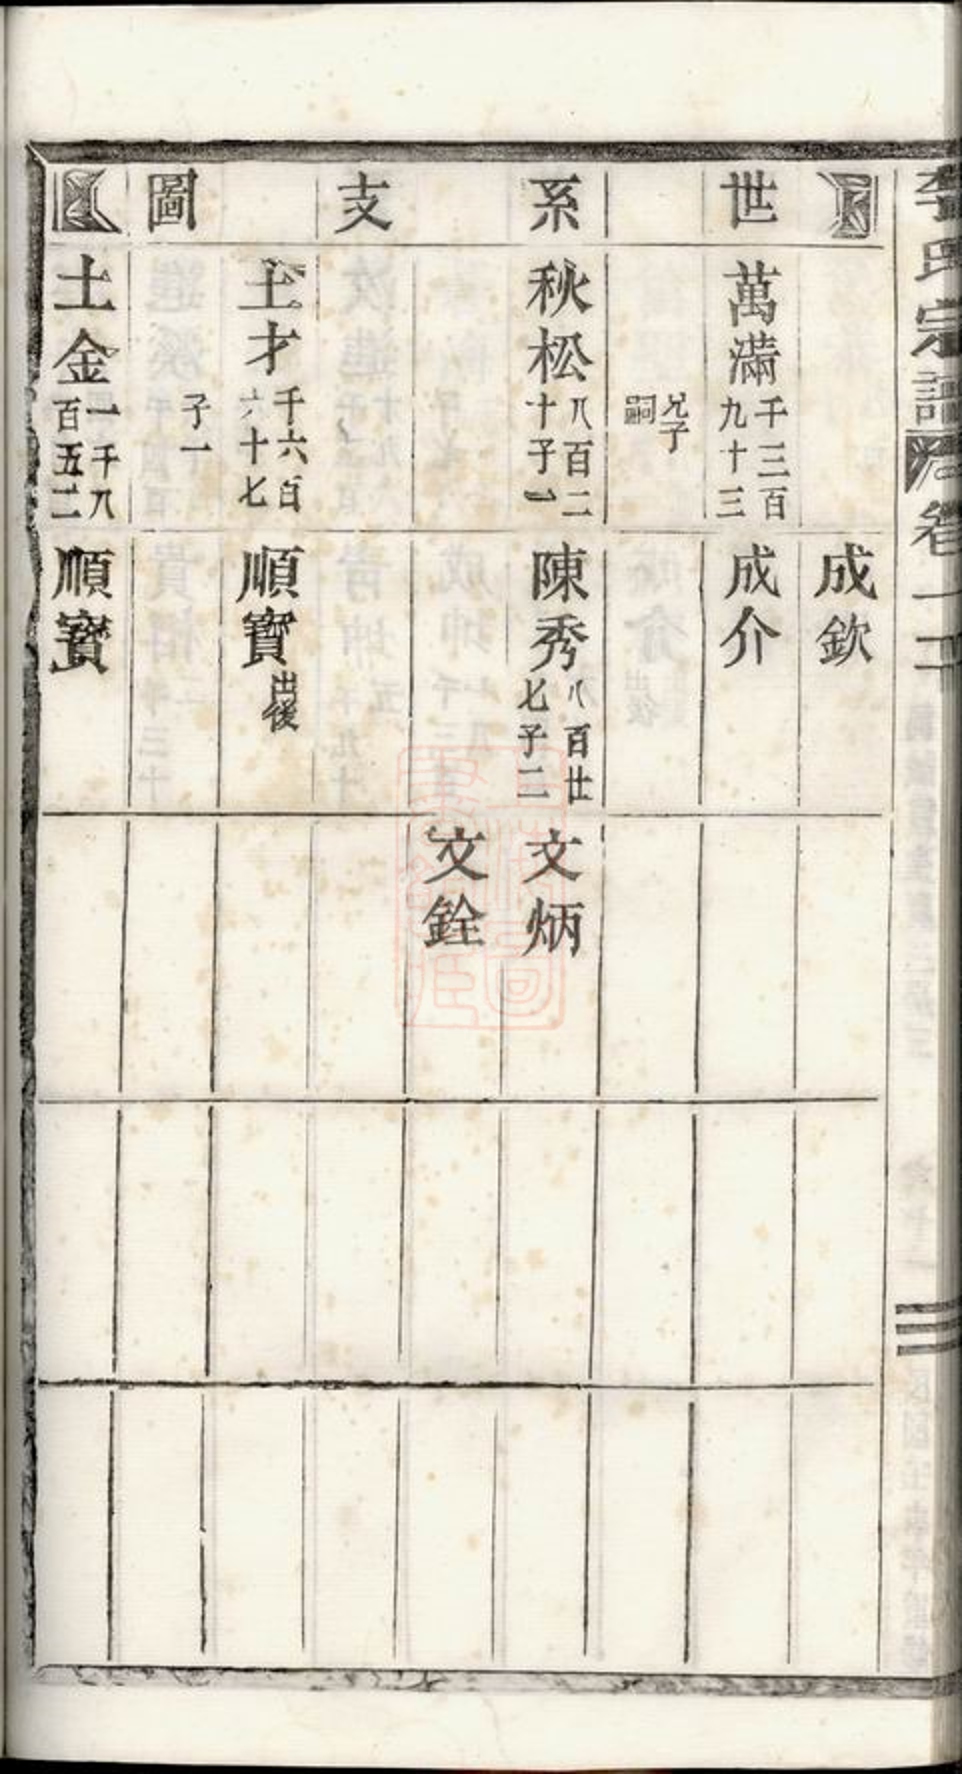 世系支圖
成欽
萬滿 千三百九十三
成介
兄子嗣
秋松 八百二十子一
陳秀 八百廿七子二
文炳
文銓
土才 千六百六十七
順寶 出後
子一
土金 一千八百五二
順寶
氏宗譜 卷一